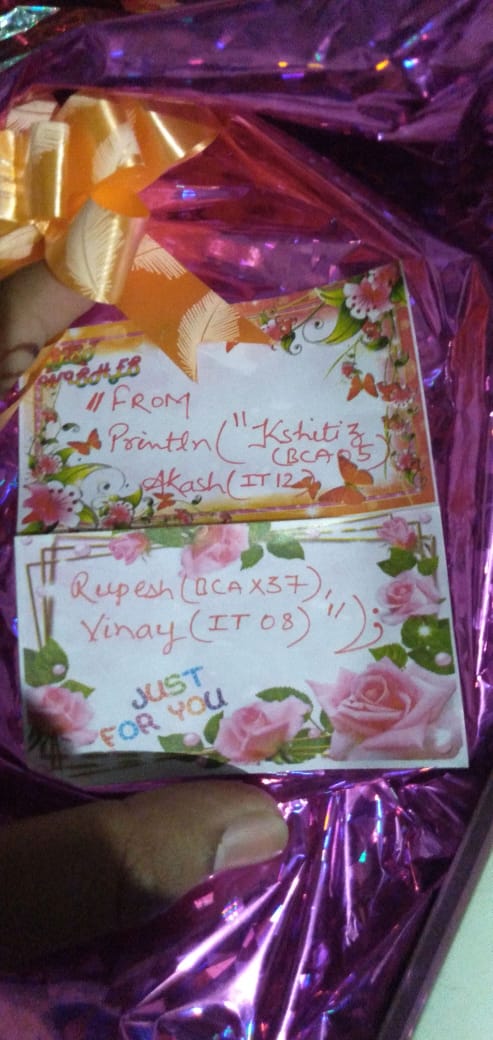 BEST
WISHES
// FROM
Println("Kshitiz
(BCA 05)
Akash (IT 12)
Rupesh (BCA X37),
Vinay (IT 08)");
JUST
FOR YOU